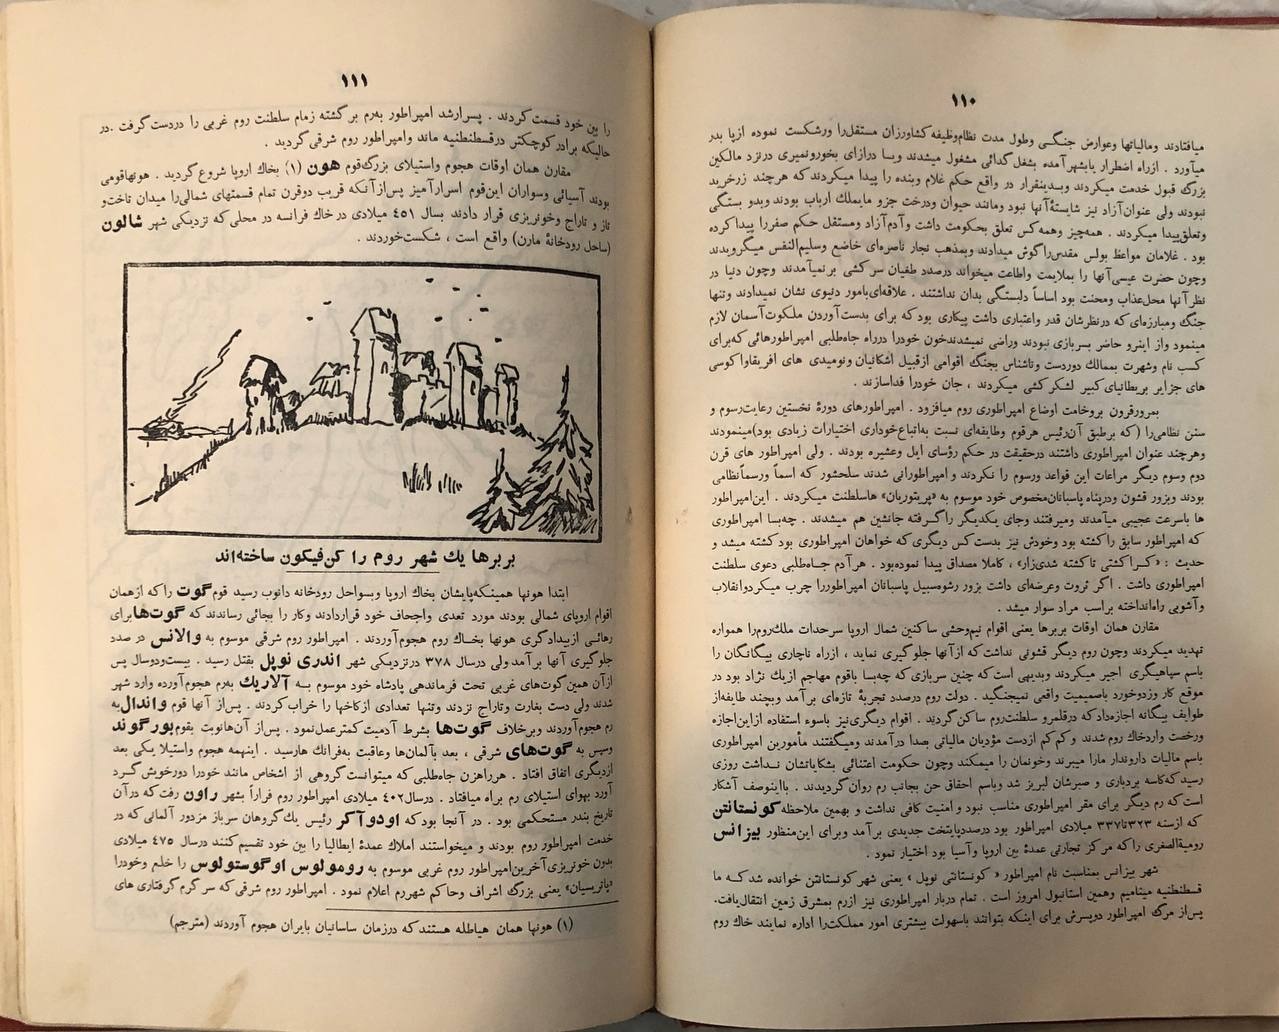 ۱۱۰
میافتادند ومالیاتها وعوارض جنگی وطول مدت نظام‌وظیفه کشاورزان مستقل‌را ورشکست نموده ازپا بدر
میآورد . ازراه اضطرار یابشهرآمده بشغل‌گدائی مشغول میشدند ویا درازای بخورونمیری درنزد مالکین
بزرگ قبول خدمت میکردند وبدینقرار در واقع حکم غلام وبنده را پیدا میکردند که هرچند زرخرید
نبودند ولی عنوان‌آزاد نیز شایستهٔ‌آنها نبود ومانند حیوان ودرخت جزو مایملك ارباب بودند وبدو بستگی
وتعلق‌پیدا میکردند . همه‌چیز وهمه‌کس تعلق بحکومت داشت وآدم‌آزاد ومستقل حکم صفررا پیداکرده
بود . غلامان مواعظ بولس مقدس‌راگوش میدادند وبمذهب نجار ناصره‌ای خاضع وسلیم‌النفس میگرویدند
وچون حضرت عیسی‌آنها را بملایمت واطاعت میخواند درصدد طغیان سرکشی برنمیآمدند وچون دنیا در
نظرآنها محل‌عذاب ومحنت بود اساساً دلبستگی بدان نداشتند . علاقه‌ای‌بامور دنیوی نشان نمیدادند وتنها
جنگ ومبارزه‌ای که درنظرشان قدر واعتباری داشت پیکاری بود که برای بدست‌آوردن ملکوت‌آسمان لازم
مینمود واز اینرو حاضر بسربازی نبودند وراضی نمیشدندخون خودرا درراه جاه‌طلبی امپراطورهائی که‌برای
کسب نام وشهرت بممالك دوردست وناشناس بجنگ اقوامی ازقبیل اشکانیان ونومیدی های افریقاواکوسی
های جزایر بریطانیای کبیر لشکرکشی میکردند ، جان خودرا فداسازند .
بمرورقرون بروخامت اوضاع امپراطوری روم میافزود . امپراطورهای دورهٔ نخستین رعایت‌رسوم و
سنن نظامی‌را (که برطبق آن‌رئیس هرقوم وطایفه‌ای نسبت به‌اتباع‌خوداری اختیارات زیادی بود)مینمودند
وهرچند عنوان امپراطوری داشتند درحقیقت در حکم رؤسای ایل وعشیره بودند . ولی امپراطور های قرن
دوم وسوم دیگر مراعات این قواعد ورسوم را نکردند و امپراطورانی شدند سلحشور که اسماً ورسماًنظامی
بودند وبزور قشون ودرپناه پاسبانان‌مخصوص خود موسوم به «پریتوریان» هاسلطنت میکردند . این‌امپراطور
ها باسرعت عجیبی میآمدند ومیرفتند وجای یکدیگر راگرفته جانشین هم میشدند . چه‌بسا امپراطوری
که امپراطور سابق راکشته بود وخودش نیز بدست‌کس دیگری که خواهان امپراطوری بودکشته میشد و
حدیث : «کراکشتی تاکشته شدی‌زار» ، کاملا مصداق پیدا نموده‌بود . هرآدم جاه‌طلبی دعوی سلطنت
امپراطوری داشت . اگر ثروت وعرضه‌ای داشت بزور رشوه‌سبیل پاسبانان امپراطوررا چرب میکردوانقلاب
وآشوبی راه‌انداخته براسب مراد سوار میشد .
مقارن همان اوقات بربرها یعنی اقوام نیم‌وحشی ساکنین شمال اروپا سرحدات ملك‌روم‌را همواره
تهدید میکردند وچون روم دیگر قشونی نداشت که‌ازآنها جلوگیری نماید ، ازراه ناچاری بیگانگان را
باسم سپاهیگری اجیر میکردند وبدیهی است که چنین سربازی که چه‌بسا باقوام مهاجم ازیك نژاد بود در
موقع کار وزدوخورد باصمیمیت واقعی نمیجنگید . دولت روم درصدد تجربهٔ تازه‌ای برآمد وبچند طایفه‌از
طوایف بیگانه اجازه‌دادکه درقلمرو سلطنت‌روم ساکن‌گردند . اقوام دیگری‌نیز باسوء استفاده ازاین‌اجازه
ورخصت واردخاك روم شدند وکم‌کم ازدست مؤدیان مالیاتی بصدا درآمدند ومیگفتند مأمورین امپراطوری
باسم مالیات داروندار مارا میبرند وخونمان را میمکند وچون حکومت اعتنائی بشکایاتشان نداشت روزی
رسید که‌کاسه بردباری و صبرشان لبریز شد وباسم احقاق حق بجانب رم روان گردیدند . بااینوصف آشکار
است که رم دیگر برای مقر امپراطوری مناسب نبود و امنیت کافی نداشت و بهمین ملاحظه کونستانتن
که ازسنه ۳۲۳تا۳۳۷ میلادی امپراطور بود درصددپایتخت جدیدی برآمد وبرای این‌منظور بیزانس
رومیةالصغری راکه مرکز تجارتی عمدهٔ بین اروپا وآسیا بود اختیار نمود .
شهر بیزانس بمناسبت نام امپراطور « کونستانتی نوپل » یعنی شهر کونستانتن خوانده شدکه ما
قسطنطنیه مینامیم وهمین استانبول امروز است . تمام دربار امپراطوری نیز ازرم بمشرق زمین انتقال‌یافت.
پس‌از مرگ امپراطور دوپسرش برای اینکه بتوانند باسهولت بیشتری امور مملکت‌را اداره نمایند خاك روم
۱۱۱
را بین خود قسمت کردند . پسرارشد امپراطور به‌رم برگشته زمام سلطنت روم غربی را دردست‌گرفت .در
حالیکه برادرکوچکتر درقسطنطنیه ماند وامپراطور روم شرقی گردید .
مقارن همان اوقات هجوم واستیلای بزرگ‌قوم هون (۱) بخاك اروپا شروع گردید . هونهاقومی
بودند آسیائی وسواران این‌قوم اسرارآمیز پس‌ازآنکه قریب دوقرن تمام قسمتهای شمالی‌را میدان تاخت‌و
تاز و تاراج وخونریزی قرار دادند بسال ٤٥١ میلادی درخاك فرانسه در محلی که نزدیکی شهر شالون
(ساحل رودخانهٔ مارن) واقع است ، شکست‌خوردند .
بربرها یك شهر روم را کن‌فیکون ساخته‌اند
ابتدا هونها همینکه‌پایشان بخاك اروپا وبسواحل رودخانه دانوب رسید قوم‌گوت را که ازهمان
اقوام اروپای شمالی بودند مورد تعدی واجحاف خود قراردادند وکار را بجائی رساندند که گوت‌هابرای
رهائی ازبیدادگری هونها بخاك روم هجوم‌آوردند . امپراطور روم شرقی موسوم به والانس در صدد
جلوگیری آنها برآمد ولی درسال ۳۷۸ درنزدیکی شهر اندری نوپل بقتل رسید . بیست‌ودوسال پس
ازآن همین گوت‌های غربی تحت فرماندهی پادشاه خود موسوم به آلاریك به‌رم هجوم‌آورده وارد شهر
شدند ولی دست بغارت وتاراج نزدند وتنها تعدادی ازکاخها را خراب کردند . پس‌از آنها قوم واندال‌به
رم هجوم‌آوردند وبرخلاف گوت‌ها بشرط آدمیت کمترعمل‌نمود . پس‌از آن‌هانوبت بقوم‌بورگوند
وسپس به گوت‌های شرقی ، بعد بآلمان‌ها وعاقبت به‌فرانك هارسید . اینهمه هجوم واستیلا یکی بعد
ازدیگری اتفاق افتاد . هرراهزن جاه‌طلبی که میتوانست گروهی از اشخاص مانند خودرا دورخویش گرد
آورد بهوای استیلای رم براه میافتاد . درسال ٤٠٢ میلادی امپراطور روم فراراً بشهر راون رفت که درآن
تاریخ بندر مستحکمی بود . در آنجا بودکه اودوآکر رئیس یك‌گروهان سرباز مزدور آلمانی که در
خدمت امپراطور روم بودند و میخواستند املاك عمدهٔ ایطالیا را بین خود تقسیم کنند درسال ٤٧٥ میلادی
بدون خونریزی‌آخرین‌امپراطور روم غربی موسوم به رومولوس اوگوستولوس را خلع وخودرا
«پاتریسیان» یعنی بزرگ اشراف وحاکم شهررم اعلام نمود . امپراطور روم شرقی که سرگرم گرفتاری های
(۱) هونها همان هیاطله هستند که درزمان ساسانیان بایران هجوم آوردند (مترجم)